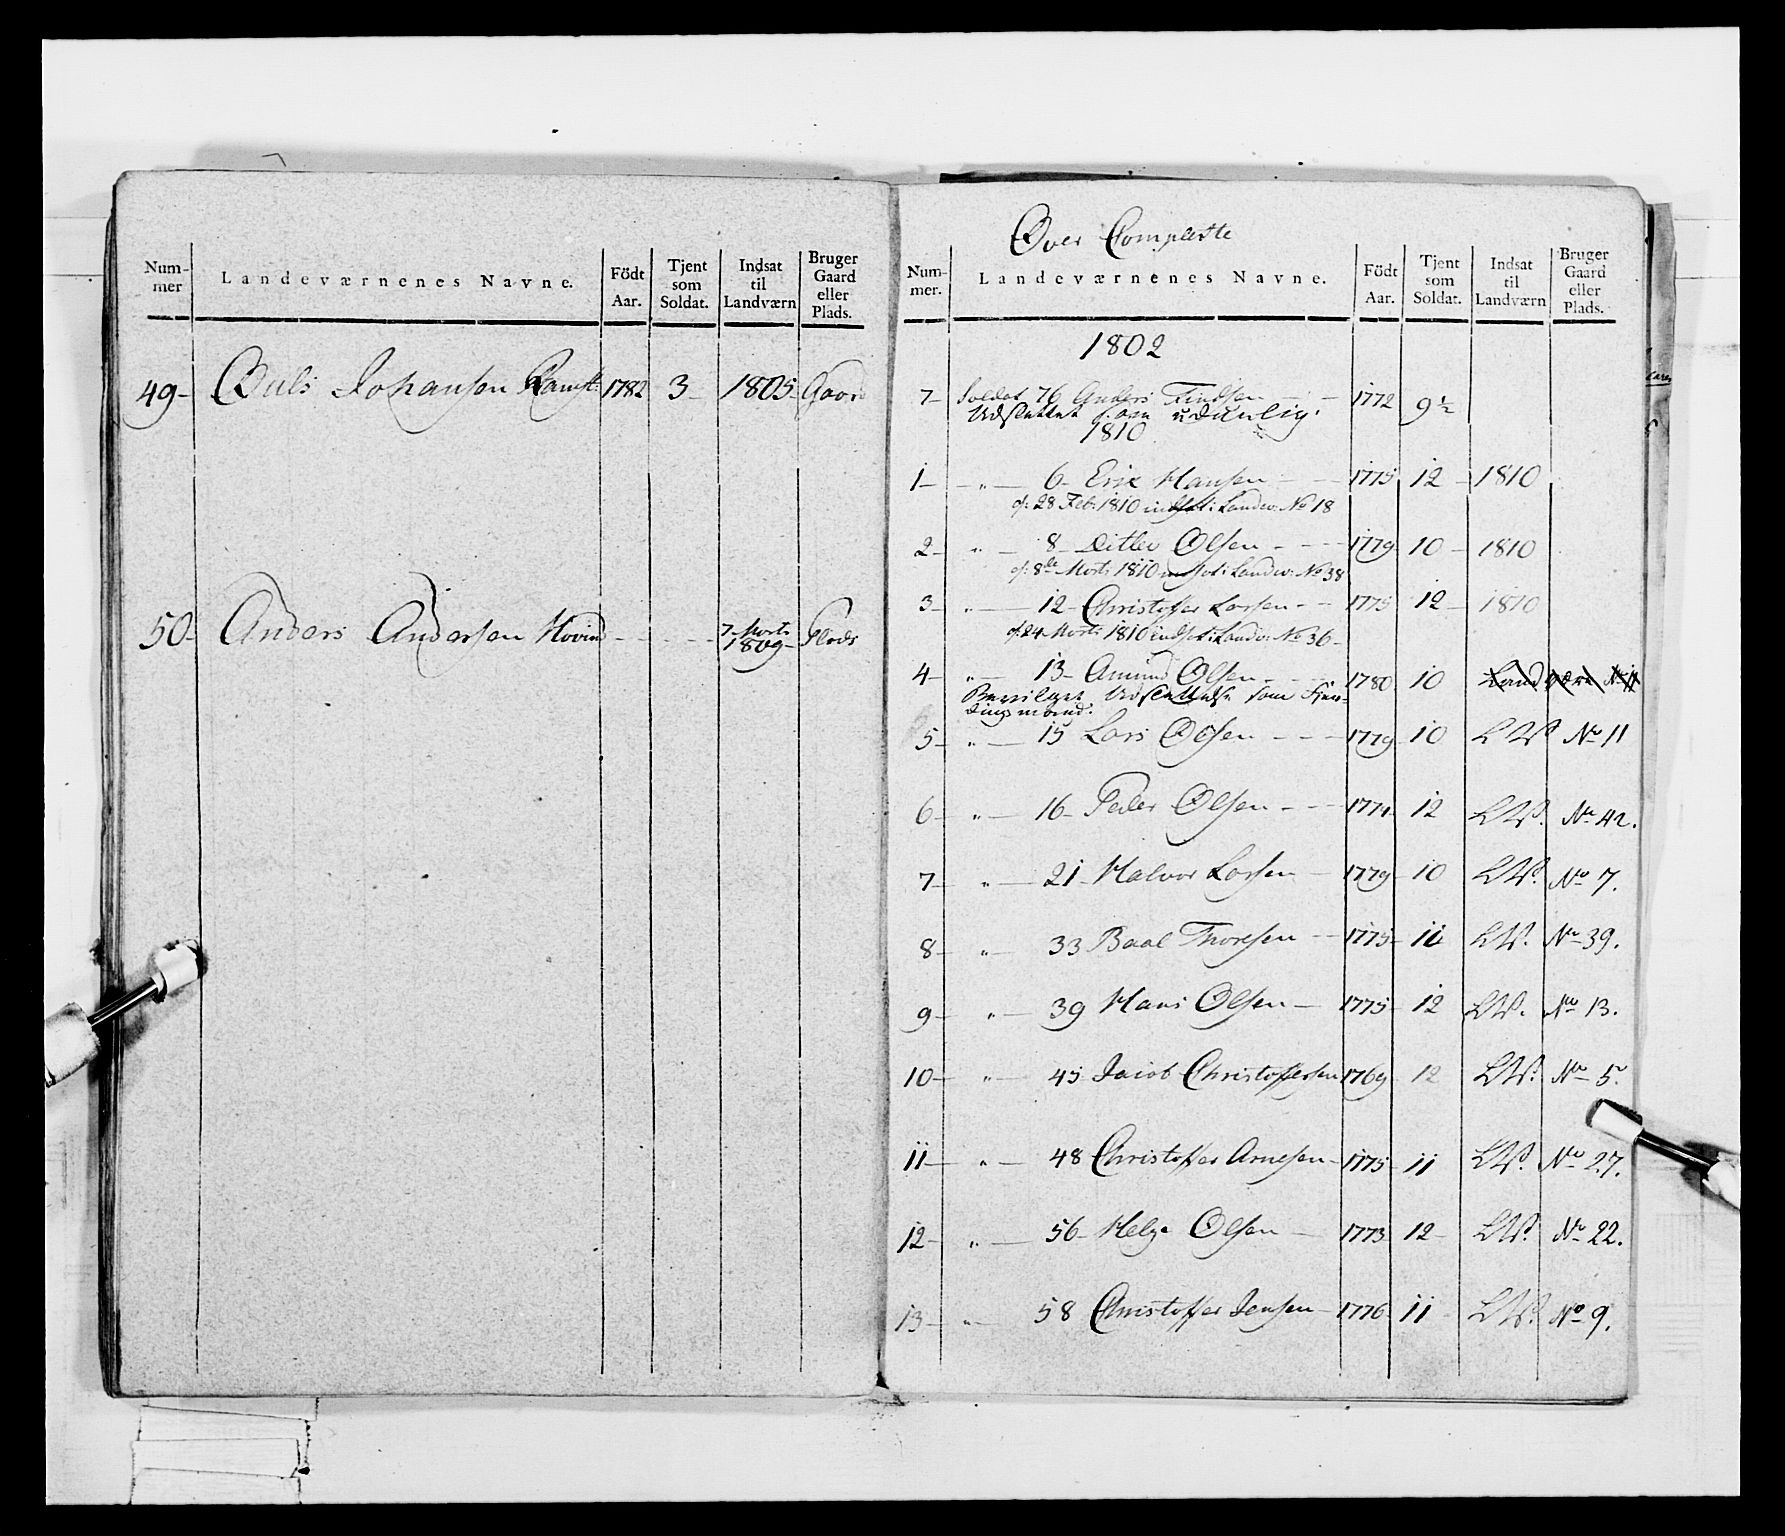 Num-
mer
Landeværnenes Navne.
Födt
Aar.
Tjent
som
Soldat.
Indsat
til
Landværn
Bruger
Gaard
eller
Plads.
49- Ouls Johansen 1782 3- 1805- Gaard
50- Anders Andersen Hovind - - - - 7 Marts 1809- Plads
Over Complette
Num-
mer.
Landeværnenes Navne.
Födt
Aar.
Tjent
som
Soldat.
Indsat
til
Landværn
Bruger
Gaard
eller
Plads.
1802
7- Soldat 76 Anders Findsen - 1772 9½
Udslettet s: aar udienlig.
1810
1- " - 6- Erik Hansen - - 1775 12 - 1810
d: 28 Feb: 1810 indsat: Landv: No 18
2- " - 8- Ditlev Olsen - - - 1779 10 - 1810
d: 8de Marts 1810 indsat: Landv: No 38
3- " - 12- Christoffer Larsen - - 1775 12 - 1810
d: 24 Marts 1810 indsat: Landv: No 36-
4- " - 13- Amund Olsen - - - 1780 10 Landværn No 11
Bevilget Udslettelse som
dingsmand.
5- " - 15 Lars Olsen - - - 1779 10 LW No 11
6- " - 16- Peder Olsen - - - 1774 12 LW. No 42.
7- " - 21- Halvor Larsen - 1779 10 LW. No 7.
8- " - 33 Baal Thoresen - - 1775- 11 LW. No 39.
9- " - 39 Hans Olsen - 1775- 12 LW. No 13.
10- " - 45 Jacob Christoffersen 1769 12 LW. No 5.
11- " - 48 Christoffer Arnesen - 1775 11 LW. No 27.
12- " - 56- Helge Olsen - 1773 12- LW. No 22.
13- " - 58 Christoffer Jensen - 1776 11 LW. No 9.